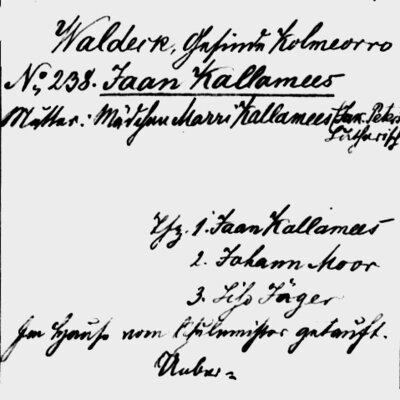 Waldeck, Gesinde Kolmeorro
No. 238. Jaan Kallamees
Mutter: Mädchen Marri Kallamees Jaak. Peters
Lutherisch
Tfz. 1. Jaan Kallamees
2. Johann Moor
3. Liso Jäger
Im Hause vom Schulmeister getauft.
Ueber=